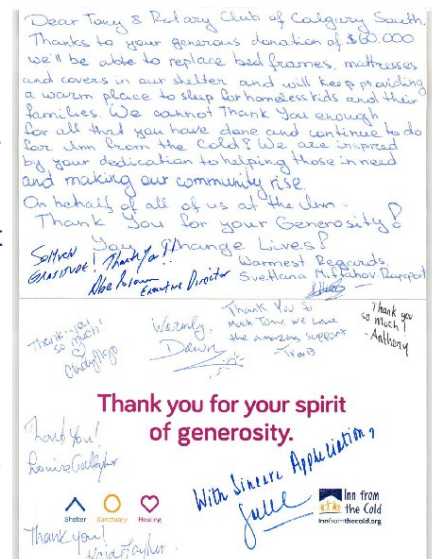 Dear Tony & Rotary Club of Calgary South.
Thanks to your generous donation of $60.000
we'll be able to replace bed frames, mattresses
and covers in our shelter and will keep providing
a warm place to sleep for homeless kids and their
families. We cannot Thank You enough
for all that you have done and continue to do
for Inn from the Cold! We are inspired
by your dedication to helping those in need
and making our community rise.
On behalf of all of us at the Inn -
Thank You for your Generosity!
You Change Lives!
So Much GRATITUDE! Thank You!!
Executive Director
Warmest Regards,
Svetlana
Thank you so much!
Cindy
Warmly,
Dawn
Thank You so
Much Tony we love
the amazing support
Thank you
so much!
- Anthony
Thank you for your spirit
of generosity.
Thank You!
Louise Gallagher
With Sincere Appreciation,
Shelter Sanctuary Healing
Inn from
the Cold
innfromthecold.org
Thank you!
Taylor